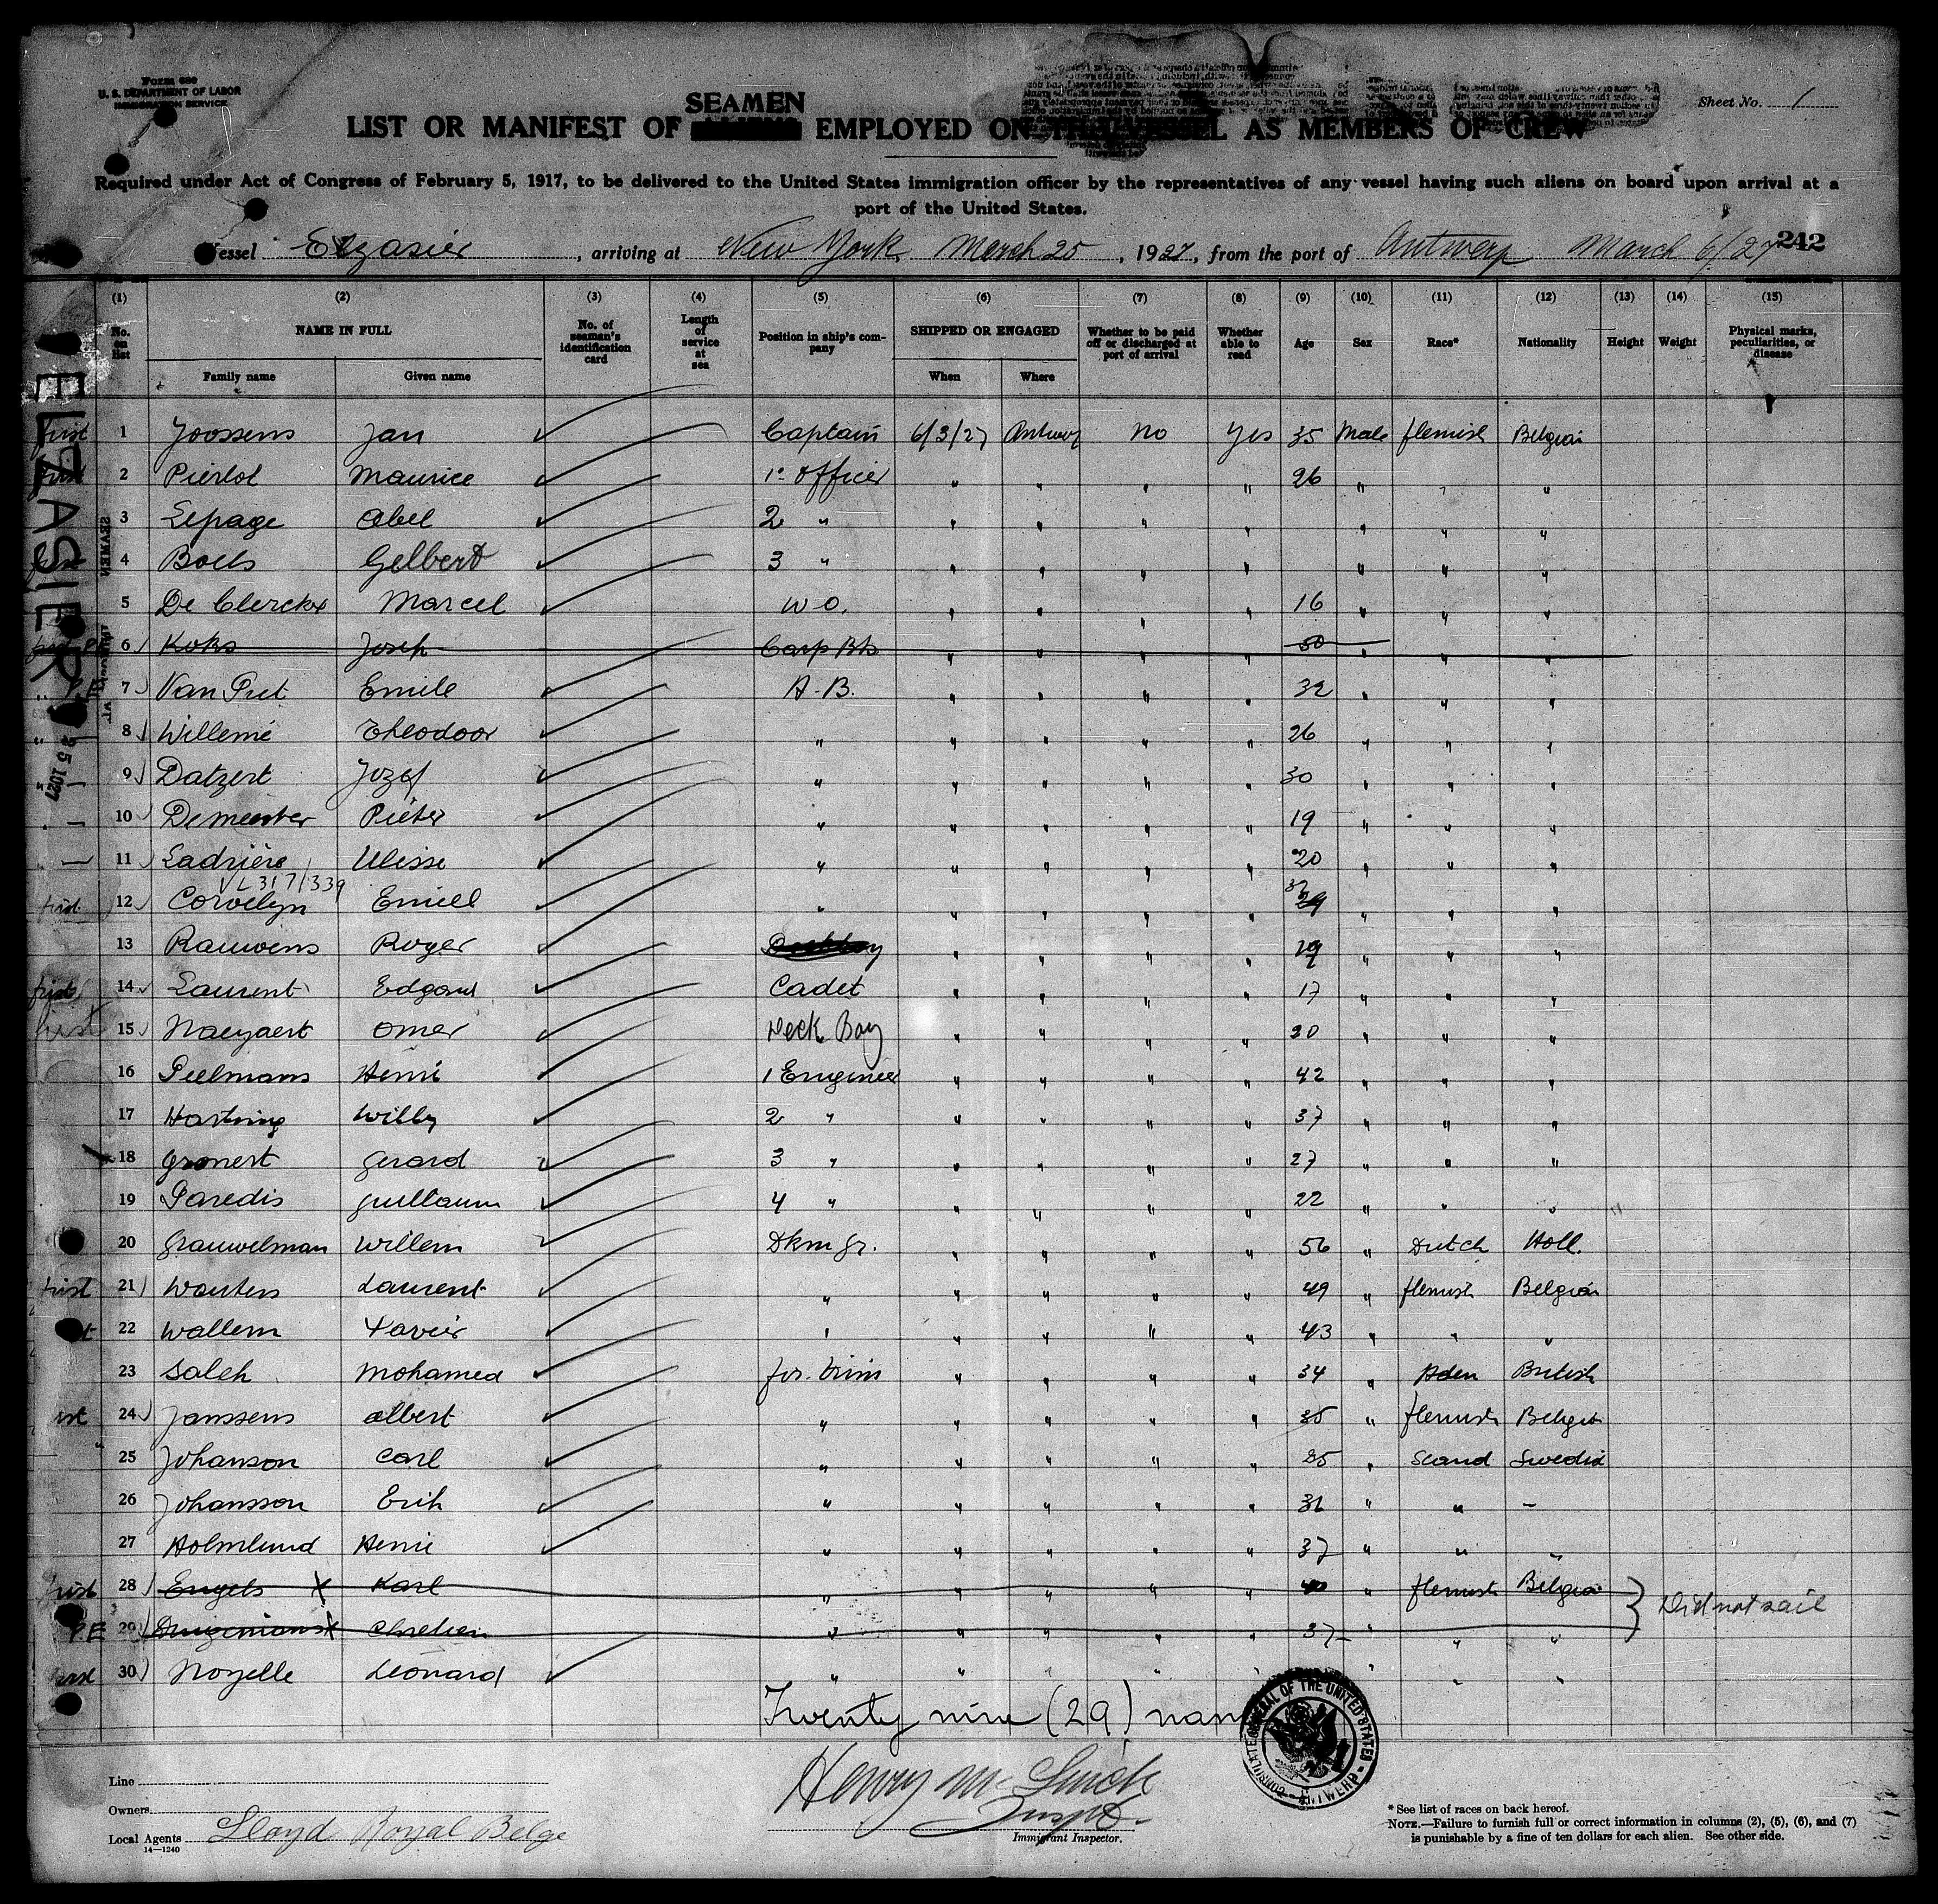 Form 680
U. S. DEPARTMENT OF LABOR
IMMIGRATION SERVICE
Sheet No. 1
SEAMEN
LIST OR MANIFEST OF EMPLOYED ON THE VESSEL AS MEMBERS OF CREW
Required under Act of Congress of February 5, 1917, to be delivered to the United States immigration officer by the representatives of any vessel having such aliens on board upon arrival at a
port of the United States.
Vessel Elzasier, arriving at New York March 25, 1927, from the port of Antwerp March 6/27
242
(1) (2) (3) (4) (5) (6) (7) (8) (9) (10) (11) (12) (13) (14) (15)
No. on list NAME IN FULL Family name Given name No. of seaman's identification card Length of service at sea Position in ship's company SHIPPED OR ENGAGED When Where Whether to be paid off or discharged at port of arrival Whether able to read Age Sex Race* Nationality Height Weight Physical marks, peculiarities, or disease
first 1 Joossens Jan Captain 6/3/27 Antwerp No Yes 35 Male flemish Belgian
first 2 Pierlot Maurice 1° Officer " " " " 26 " " "
3 Lepage Abel 2 " " " " " " " "
4 Boels Gelbert 3 " " " " " " " "
5 De Clerckx Marcel W O. " " " " 16 " " "
6 Koks Joseph Carp " " " " 50 " " "
7 Van Put Emile A.B. " " " " 32 " " "
8 Willemé Theodoor " " " " " 26 " " "
9 Datzert Jozef " " " " " 30 " " "
10 Demeester Pieter " " " " " 19 " " "
11 Ladrière Ulisse " " " " " 20 " " "
VL 317/339
first 12 Corvelyn Emiel " " " " " " " "
13 Rauwens Roger " " " " 19 " " "
first 14 Laurent Edgard Cadet " " " " 17 " " "
first 15 Naeyaert Omer Deck Boy " " " " 30 " " "
16 Peelmans Henri 1 Engineer " " " " 42 " " "
17 Harting Willy 2 " " " " " 37 " " "
18 Gronert Gerard 3 " " " " " 27 " " "
19 Paredis Guillaum 4 " " " " " 22 " " "
20 Grauwelman Willem Dkm gr. " " " " 56 " Dutch Holl.
first 21 Wouters Laurent " " " " " 49 " flemish Belgian
22 Wallem Xavier " " " " " 43 " " "
23 Saleh Mohamed fir. trim " " " " 34 " Aden British
24 Janssens Albert " " " " " 35 " flemish Belgian
25 Johanson Carl " " " " " 35 " Scand Swedish
26 Johansson Erik " " " " " 31 " " "
27 Holmlund Henri " " " " " 37 " " "
first 28 Engels Karl " " " " " 40 " flemish Belgian
Did not sail
P.E 29 Chretien " " " " " 37 " " "
first 30 Noyelle Leonard " " " " " " " "
Twenty nine (29) names
CONSULATE GENERAL OF THE UNITED STATES ANTWERP
ELZASIER
SEAMEN
25 1927
Line
Owners
Local Agents Lloyd Royal Belge
14—1240
Henry
Inspt.
Immigrant Inspector.
* See list of races on back hereof.
NOTE.—Failure to furnish full or correct information in columns (2), (5), (6), and (7)
is punishable by a fine of ten dollars for each alien. See other side.